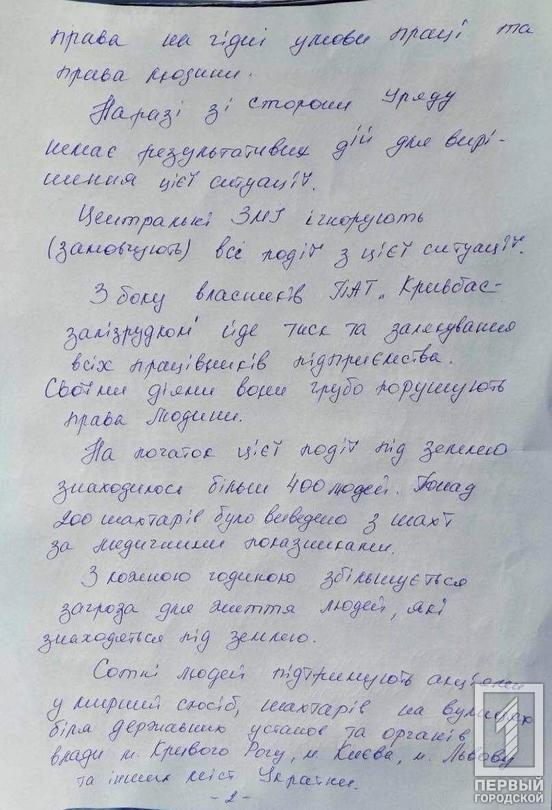 права на гідні умови праці та
права людини.
Наразі зі сторони Уряду
немає результативних дій для вирі-
шення цієї ситуації.
Центральні ЗМІ ігнорують
(замовчують) всі події з цієї ситуації.
З боку власників ПАТ „Кривбас-
залізрудком" йде тиск та залякування
всіх працівників підприємства.
Своїми діями вони грубо порушують
права Людини.
На початок цієї події під землею
знаходилося більш 400 людей. Понад
200 шахтарів було виведено з шахт
за медичними показниками.
З кожною годиною збільшується
загроза для життя людей, які
знаходяться під землею.
Сотні людей підтримують акціями
у мирний спосіб, шахтарів на вулицях
біля державних установ та органів
влади м. Кривого Рогу, м. Києва, м. Львову
та інших міст України.
- 2 -
1
ПЕРВЫЙ
ГОРОДСКОЙ